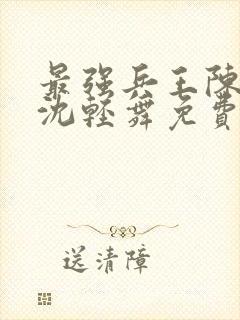 最强兵王陈
沈轻舞免费
送清障